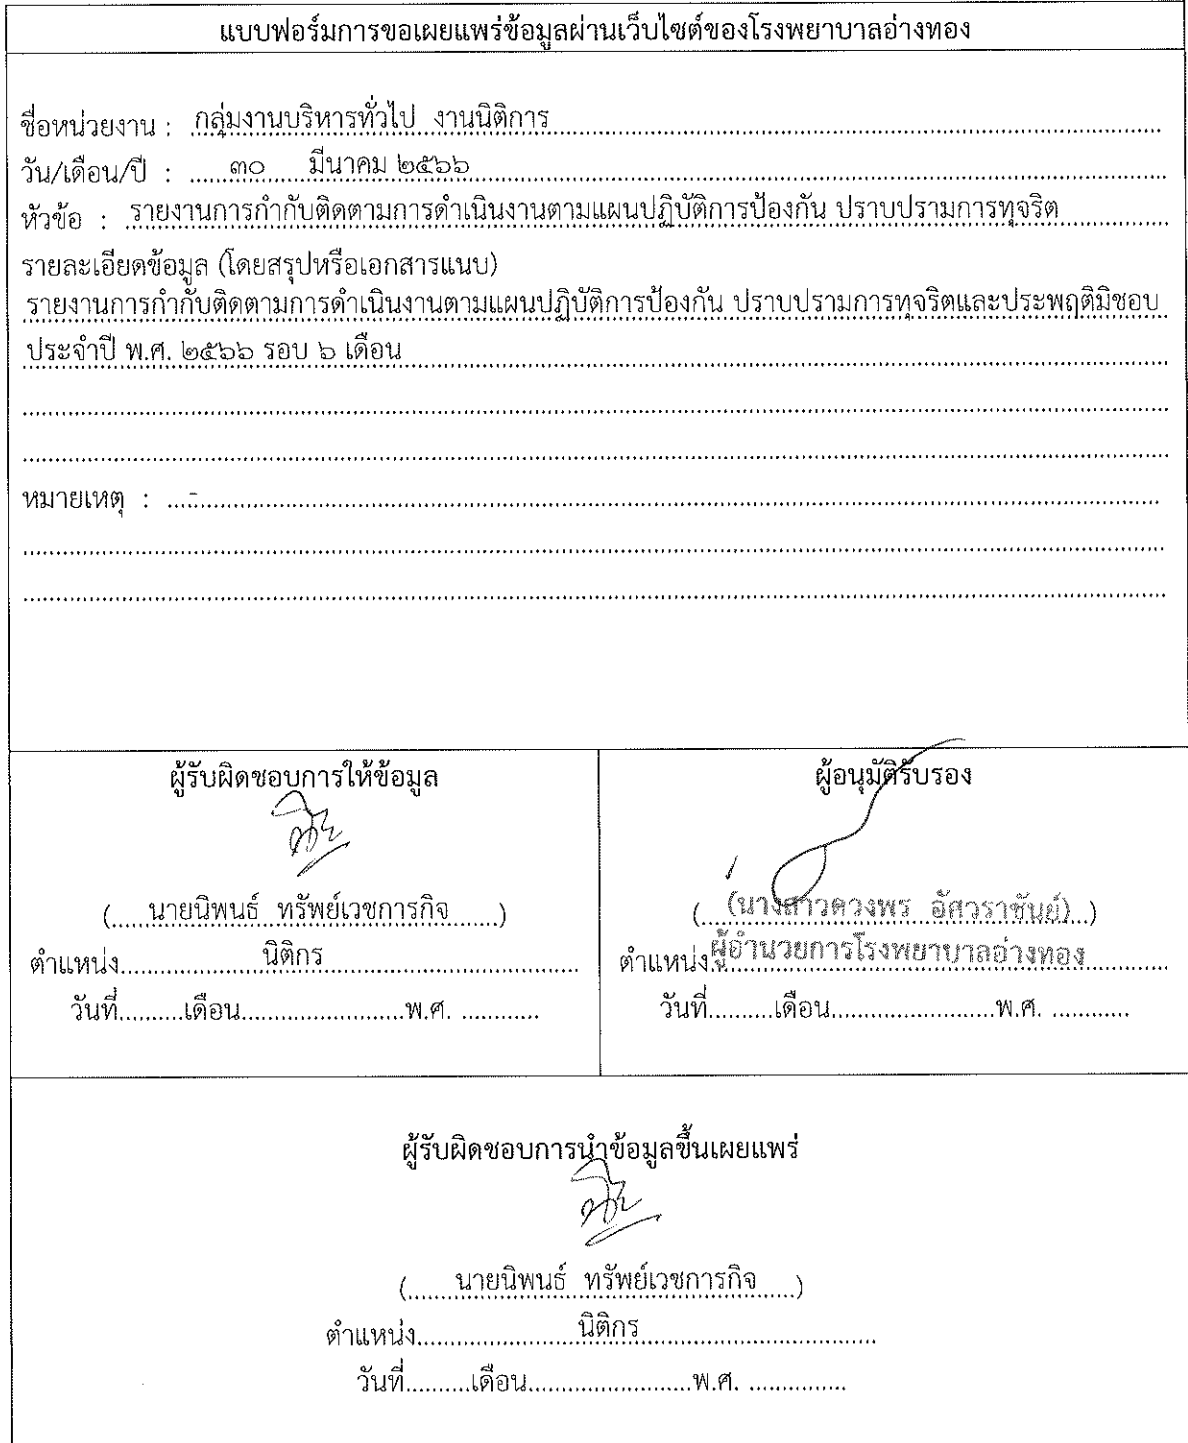 แบบฟอร์มการขอเผยแพร่ข้อมูลผ่านเว็บไซต์ของโรงพยาบาลอ่างทอง
ชื่อหน่วยงาน : กลุ่มงานบริหารทั่วไป งานนิติการ
วัน/เดือน/ปี : ๓๐ มีนาคม ๒๕๖๖
หัวข้อ : รายงานการกำกับติดตามการดำเนินงานตามแผนปฏิบัติการป้องกัน ปราบปรามการทุจริต
รายละเอียดข้อมูล (โดยสรุปหรือเอกสารแนบ)
รายงานการกำกับติดตามการดำเนินงานตามแผนปฏิบัติการป้องกัน ปราบปรามการทุจริตและประพฤติมิชอบ
ประจำปี พ.ศ. ๒๕๖๖ รอบ ๖ เดือน
หมายเหตุ : -
ผู้รับผิดชอบการให้ข้อมูล
(นายนิพนธ์ ทรัพย์เวชการกิจ)
ตำแหน่ง นิติกร
วันที่..........เดือน.........................พ.ศ. ............
ผู้อนุมัติรับรอง
(นางสาวดวงพร อัศวราชันย์)
ตำแหน่ง ผู้อำนวยการโรงพยาบาลอ่างทอง
วันที่..........เดือน.........................พ.ศ. ............
ผู้รับผิดชอบการนำข้อมูลขึ้นเผยแพร่
(นายนิพนธ์ ทรัพย์เวชการกิจ)
ตำแหน่ง นิติกร
วันที่.........เดือน.........................พ.ศ. ...............